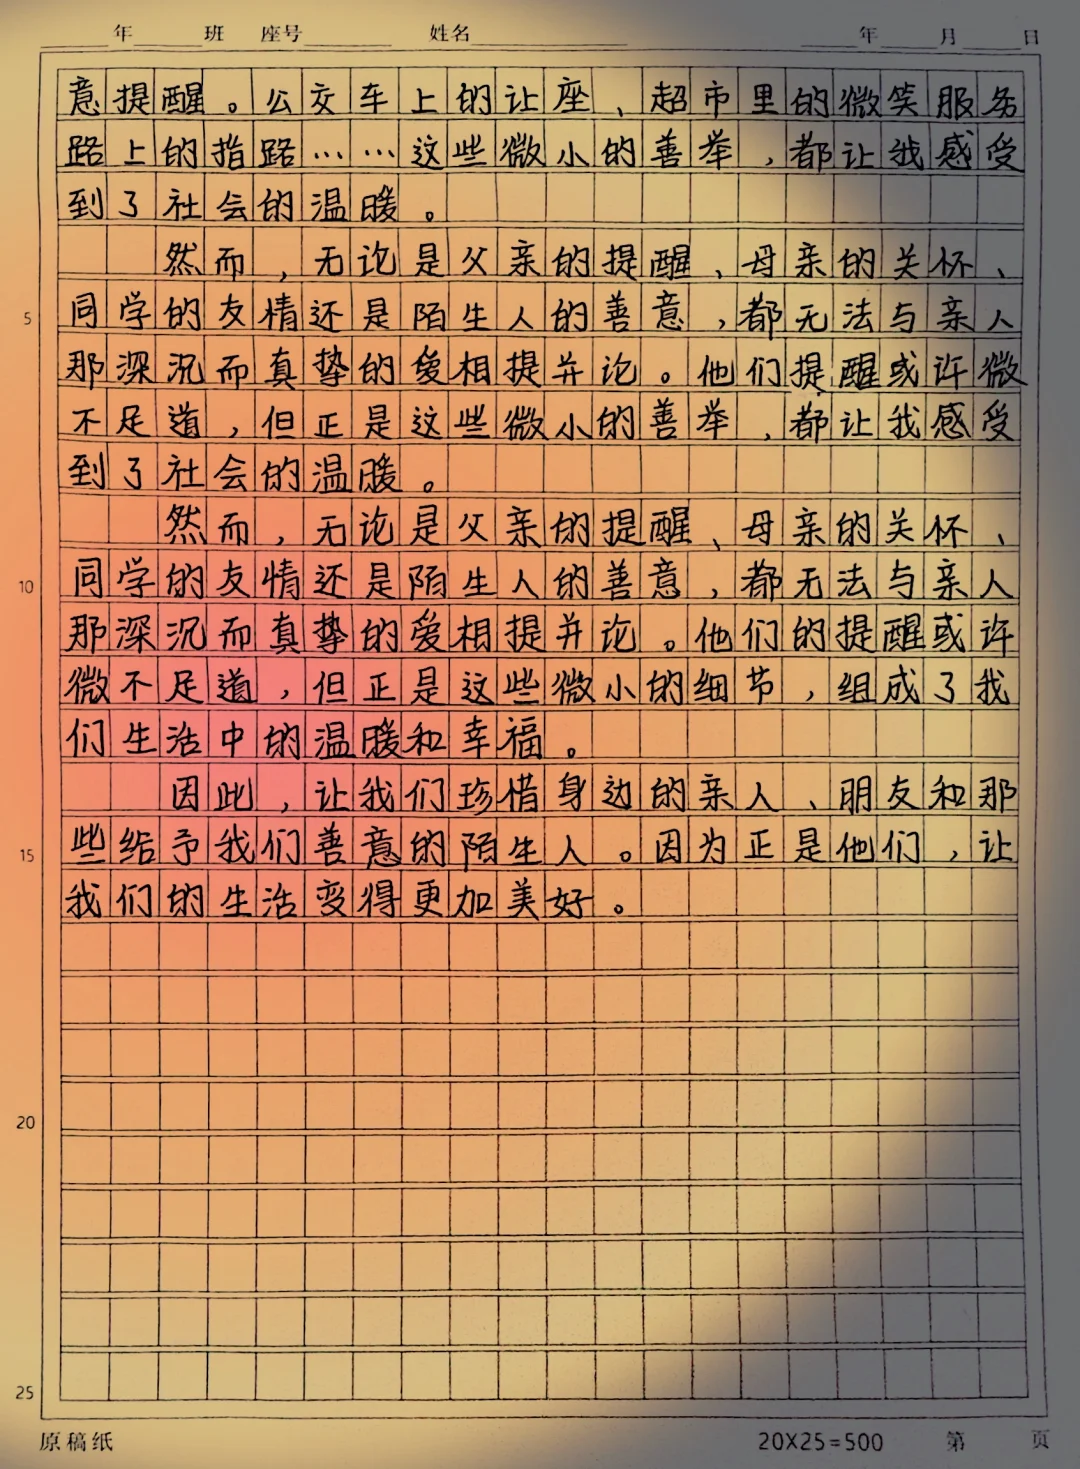 年 班 座号 姓名 年 月 日
意提醒。公交车上的让座、超市里的微笑服务
路上的指路……这些微小的善举,都让我感受
到了社会的温暖。
然而,无论是父亲的提醒、母亲的关怀、
5 同学的友情还是陌生人的善意,都无法与亲人
那深沉而真挚的爱相提并论。他们提醒或许微
不足道,但正是这些微小的善举,都让我感受
到了社会的温暖。
然而,无论是父亲的提醒、母亲的关怀、
10 同学的友情还是陌生人的善意,都无法与亲人
那深沉而真挚的爱相提并论。他们的提醒或许
微不足道,但正是这些微小的细节,组成了我
们生活中的温暖和幸福。
因此,让我们珍惜身边的亲人、朋友和那
15 些给予我们善意的陌生人。因为正是他们,让
我们的生活变得更加美好。
20
25
原稿纸 20X25=500 第 页